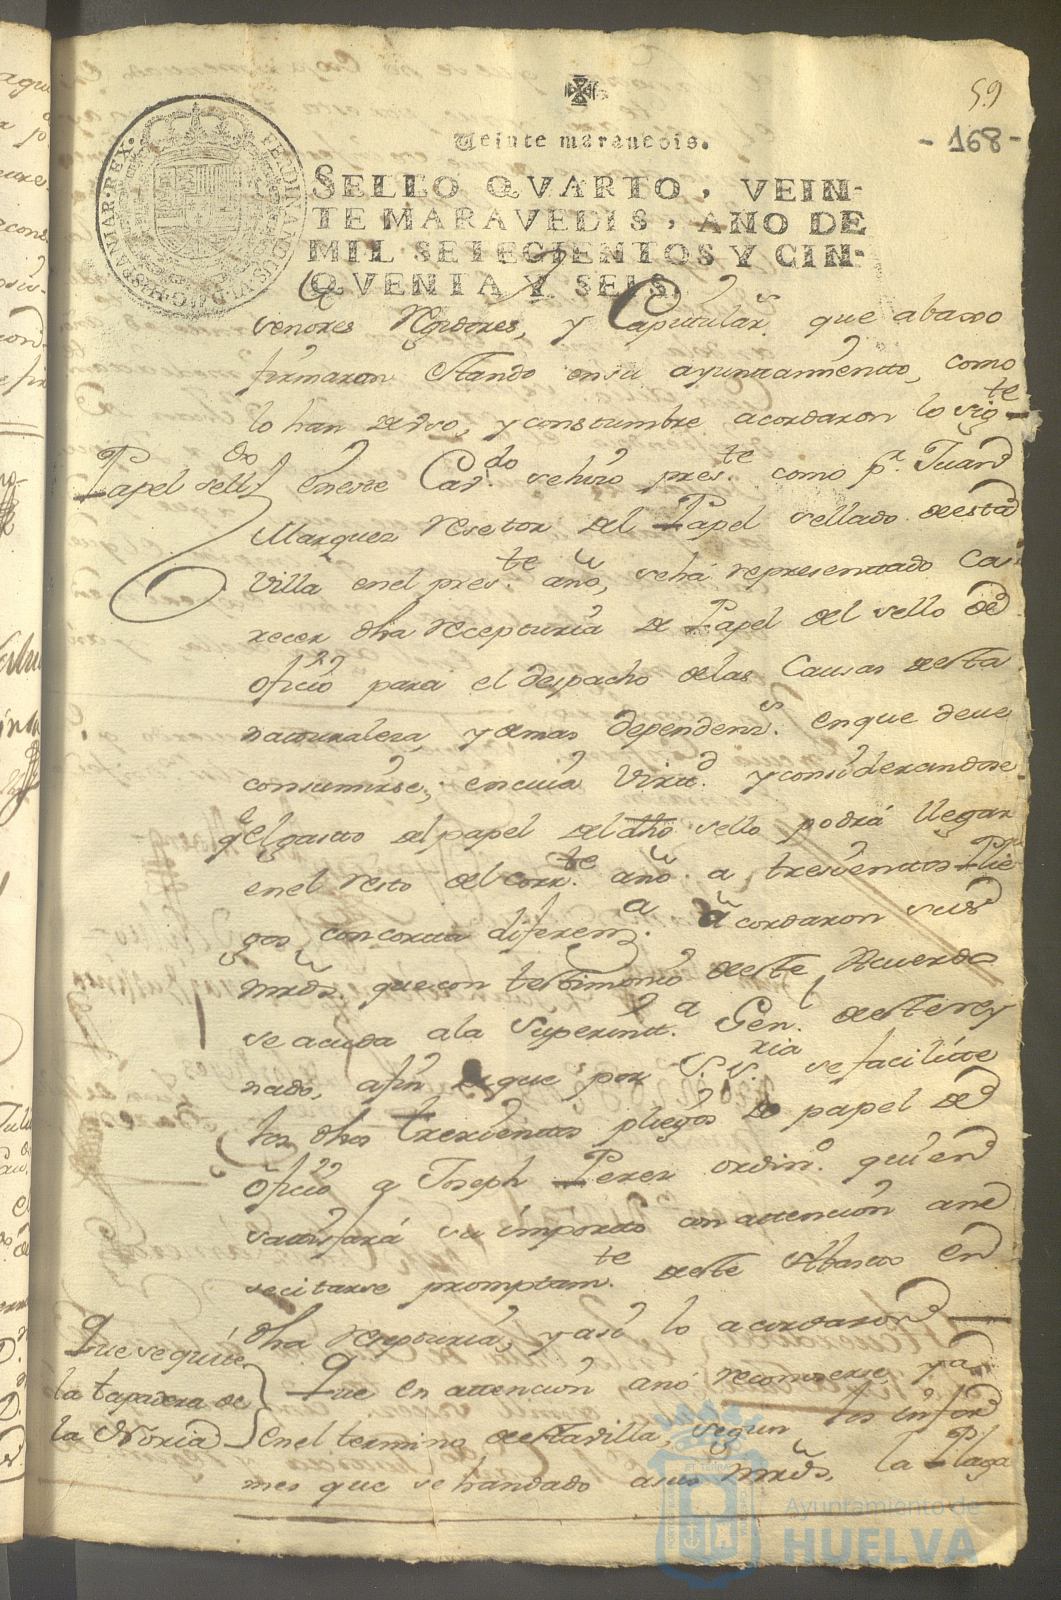 59
- 168 -
Veinte maravedis.
SELLO QVARTO, VEIN-
TE MARAVEDIS, AÑO DE
MIL SETECIENTOS Y CIN-
QVENTA Y SEIS.
FERDINANDUS VI D.G. HISPANIAR. REX.
señores Rexidores, y Capitulars que abaxo
firmaron stando en su ayuntamiento, como
lo han de uso, y constumbre acordaron lo sigte
Papel selldo
En este Cavdo se hizo preste como pr Juan
Marquez resetor del Papel sellado de esta
Villa en el preste año, se há representado Ca-
recer dha recepturia de Papel del sello de
oficio para el despacho de las Causas de esta
naturaleza, y demas dependens en que deue
consumirse; en cuia virtd y considerandose
q el gasto del papel del dho sello podrá llegar
en el resto del corrte año a trescientos Plie
gos con corta diferenza Acordaron sus
mrds. que con testimonio de este Acuerdo
se acuda a la Superinta Genl de este rey
nado, afin de que por S. Sria se facilite
los dhos trescientos pliegos de papel de
oficio a Joseph Perez ordino quien
satisfará su importe con attención a ne
secitarse promptamte de este Abasto en
dha recepturia, y asi lo acordaron
Que se quite
la tapadera de
la Noria
Que en attención a no reconoserse ya
en el termino de esta villa, según los infor
mes que se han dado a sus mrds. la Plaga
Ayuntamiento de
HUELVA